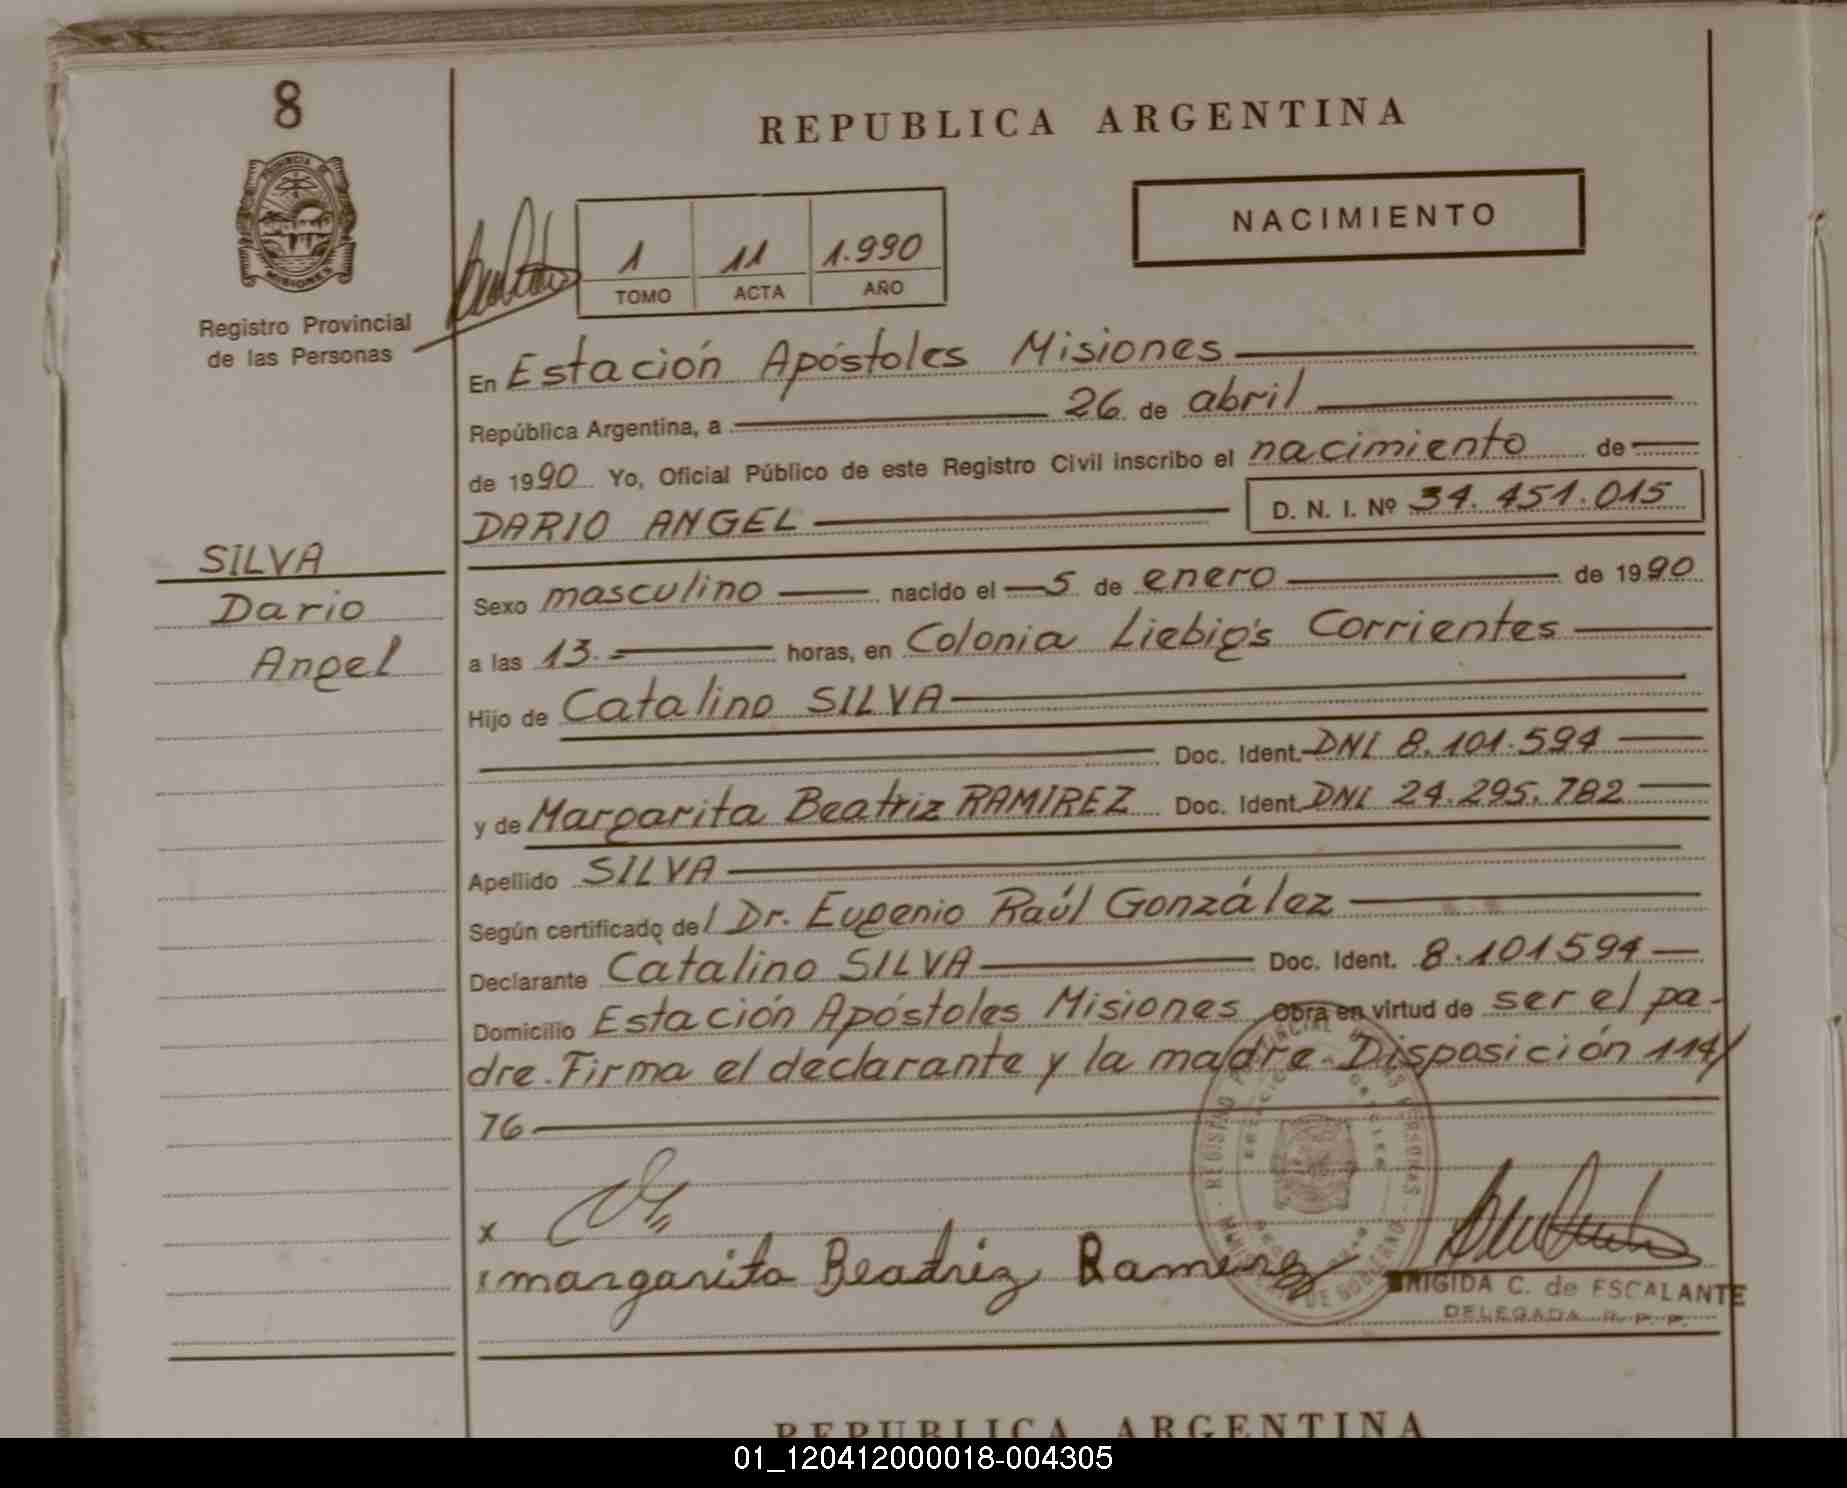 8
REPUBLICA ARGENTINA
PROVINCIA DE
MISIONES
NACIMIENTO
1 11 1.990
TOMO ACTA AÑO
Registro Provincial
de las Personas
En Estación Apóstoles Misiones
República Argentina, a 26 de abril
de 1990 Yo, Oficial Público de este Registro Civil inscribo el nacimiento de
DARIO ANGEL D. N. I. Nº 34.451.015
SILVA
Dario
Angel
Sexo masculino nacido el 5 de enero de 1990
a las 13 horas, en Colonia Liebig's Corrientes
Hijo de Catalino SILVA
Doc. Ident. DNI 8.101.594
y de Margarita Beatriz RAMIREZ Doc. Ident. DNI 24.295.782
Apellido SILVA
Según certificado del Dr. Eugenio Raúl González
Declarante Catalino SILVA Doc. Ident. 8.101594
Domicilio Estación Apóstoles Misiones Obra en virtud de ser el pa-
dre. Firma el declarante y la madre. Disposición 114/
76
x
margarita Beatriz Ramirez
BRIGIDA C. de ESCALANTE
DELEGADA R. P. P.
REPUBLICA ARGENTINA
01_120412000018-004305